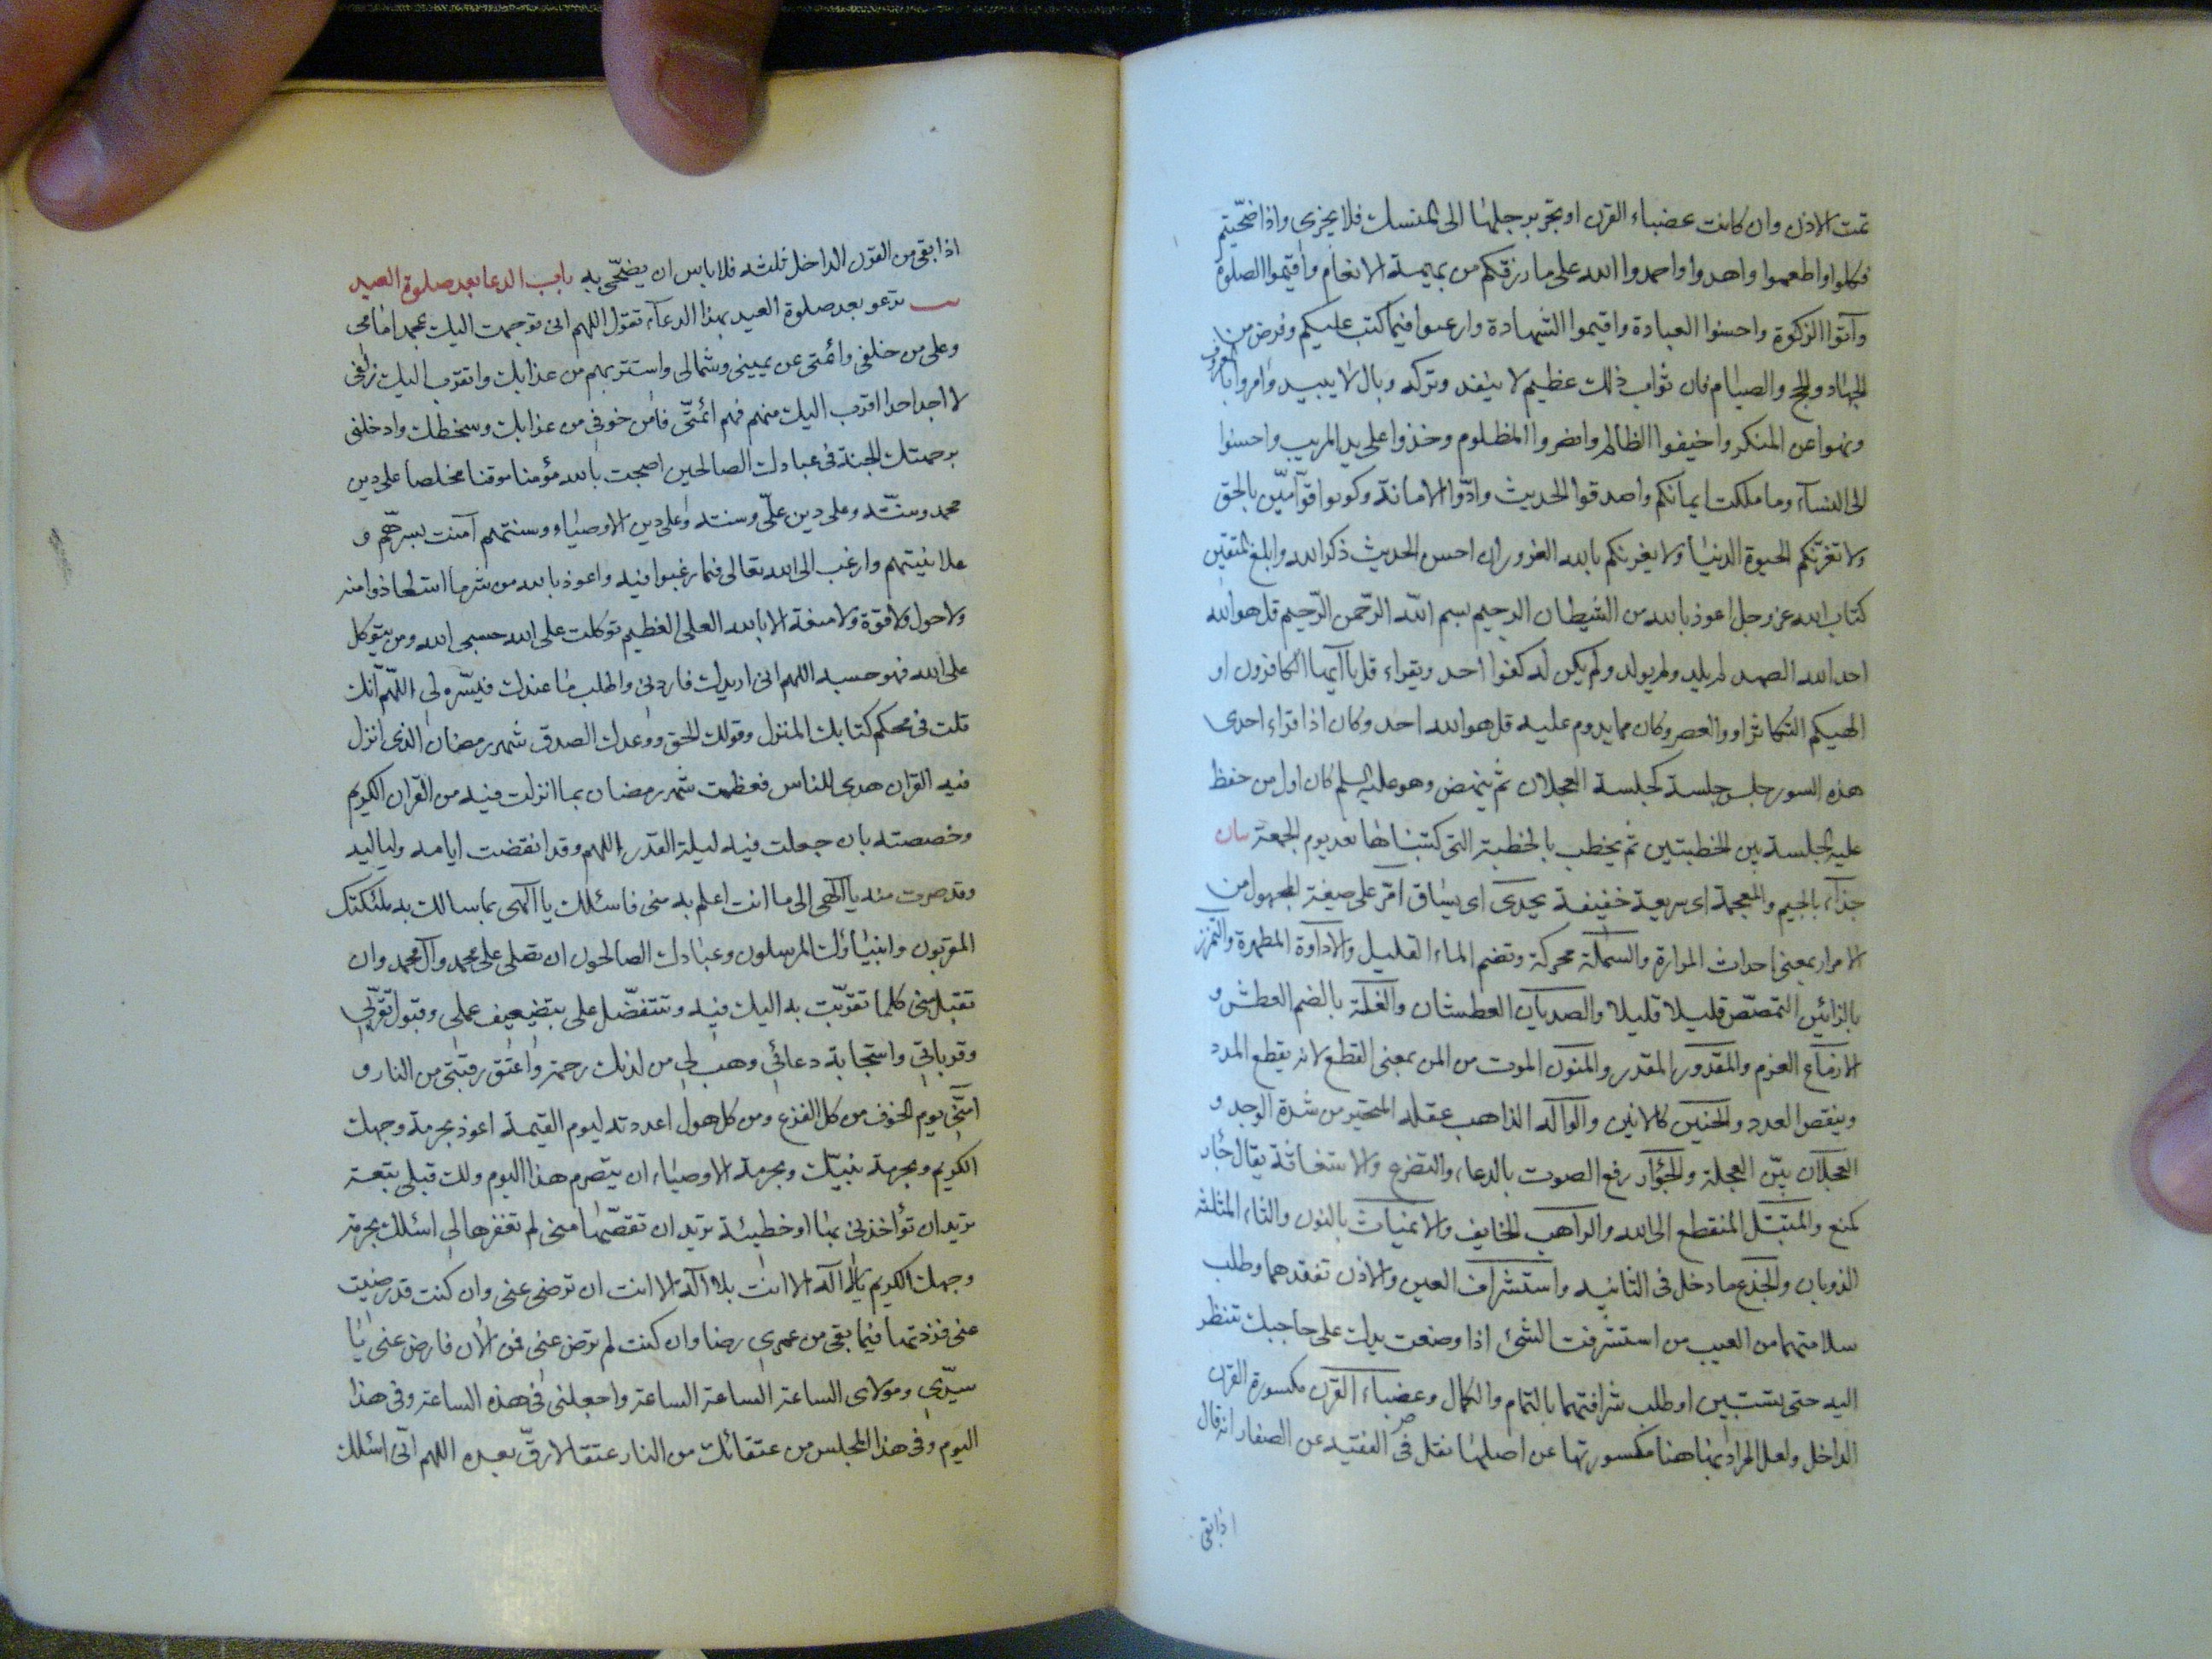 تمت الاذن وان كانت عضباء القرن او تجر برجلها الى المنسك فلا يجزى واذا ضحّيتم
فكلوا واطعموا واهدوا واحمدوا الله على ما رزقكم من بهيمة الانعام واقيموا الصلوة
وآتوا الزكوة واحسنوا العبادة واقيموا الشهادة وارغبوا فيما كتب عليكم وفرض من
الجهاد والحج والصيام فان ثواب ذلك عظيم لا ينفد وتركه وبال لا يبيد وأمروا بالمعروف
ونهوا عن المنكر واخيفوا الظالم وانصروا المظلوم وخذوا على يد المريب واحسنوا
الى النسآء وما ملكت ايمانكم واصدقوا الحديث وادّوا الامانة وكونوا قوّامين بالحق
ولا تغرّنكم الحيوة الدنيا ولا يغرنكم بالله الغرور ان احسن الحديث ذكر الله وابلغ المتقين
كتاب الله عز وجل اعوذ بالله من الشيطان الرجيم بسم الله الرّحمن الرّحيم قل هو الله
احد الله الصمد لم يلد ولم يولد ولم يكن له كفوا احد ويقراء قل يا آيها الكافرون او
الهيكم التكاثر او والعصر وكان مما يدوم عليه قل هو الله احد وكان اذا قراء احدى
هذه السور جلس جلسة كجلسة العجلان ثم ينهض وهو عليه السلم كان اول من حفظ
عليه الجلسة بين الخطبتين ثم يخطب بالخطبة التى كتبناها بعد يوم الجمعة بيان
جذآء بالجيم والمعجمة اى سريعة خفيفة يحدى اى يساق امّر على صيغة المجهول من
الامرار بمعنى احداث المرارة والسملة محركة وتضم الماء القليل والاداوة المطهرة والتمزز
بالزائين التمصّص قليلا قليلا والصديان العطشان والغلة بالضم العطش و
الازماع العزم والمقدور المقدر والمنون الموت من المن بمعنى القطع لانه يقطع المدد
وينقص العدد والحنين كالانين والواله الذاهب عقله المتحير من شدة الوجد و
العجلان بيّن العجلة والجؤار رفع الصوت بالدعاء والتضرع والاستغاثة يقال جأر
كمنع والمتبتل المنقطع الى الله والراهب الخايف والانمياث بالنون والثاء المثلثة
الذوبان والجذع ما دخل فى الثانيه واستشراف العين والاذن تفقدهما وطلب
سلامتهما من العيب من استشرفت الشئ اذا وضعت يدك على حاجبك تنظر
اليه حتى يستبين او طلب شرافتهما بالتمام والكمال وعضباء القرن مكسورة القرن
الداخل ولعل المراد بها هنا مكسورتها عن اصلها نقل فى الفقيه عن الصفار انه قال
اذا بقى
اذا بقى من القرن الداخل ثلثه فلا باس ان يضحّى به باب الدعا بعد صلوة العيد
تدعو بعد صلوة العيد بهذا الدعآء تقول اللهم انى توجهت اليك بمحمد امامى
وعلى من خلفى وائمتى عن يمينى وشمالى واستتر بهم من عذابك واتقرب اليك زلفى
لا اجد احدا اقرب اليك منهم فهم ائمتّى فامن خوفى من عذابك وسخطك وادخلنى
برحمتك الجنة فى عبادك الصالحين اصبحت بالله مؤمنا موقنا مخلصا على دين
محمد وسنّته وعلى دين علىّ وسنته وعلى دين الاوصياء وسنتهم آمنت بسرّهم و
علانيتهم وارغب الى الله تعالى فيما رغبوا فيه واعوذ بالله من شر ما استعاذوا منه
ولا حول ولا قوة ولا منعة الا بالله العلى العظيم توكلت على الله حسبى الله ومن يتوكل
على الله فهو حسبه اللهم انى اريدك فاردنى واطلب ما عندك فيسّره لى اللهّم انّك
قلت فى محكم كتابك المنزل وقولك الحق ووعدك الصدق شهر رمضان الذى انزل
فيه القران هدى للناس فعظمت شهر رمضان بما انزلت فيه من القران الكريم
وخصصته بان جعلت فيه ليلة القدر اللهم وقد انقضت ايامه ولياليه
وقد صرت منه يا الهى الى ما انت اعلم به منى فاسئلك يا الهى بما سالك به ملئكتك
المقربون وانبياؤك المرسلون وعبادك الصالحون ان تصلى على محمد وآل محمد وان
تقبل منى كلما تقرّبت به اليك فيه وتتفضّل على بتضعيف عملى وقبول تقرّبى
وقرباتى واستجابة دعائى وهب لى من لدنك رحمة واعتق رقبتى من النار و
امنّى يوم الخوف من كل الفزع ومن كل هول اعددته ليوم القيمة اعوذ بحرمة وجهك
الكريم وبحرمة نبيّك وبحرمة الاوصياء ان يتصرم هذا اليوم ولك قبلى تبعة
تريد ان تؤاخذنى بها او خطيئة تريد ان تقتصّها منى لم تغفرها لى اسئلك بحرمة
وجهك الكريم يا لا اله الا انت بلا اله الا انت ان ترضى عنى وان كنت قد رضيت
عنى فزد فيما بقى من عمرى رضا وان كنت لم ترض عنى فمن الآن فارض عنى يا
سيّدى ومولاى الساعة الساعة الساعة واجعلنى فى هذه الساعة وفى هذا
اليوم وفى هذا المجلس من عتقائك من النار عتقا لا رقّ بعده اللهم انّى اسئلك